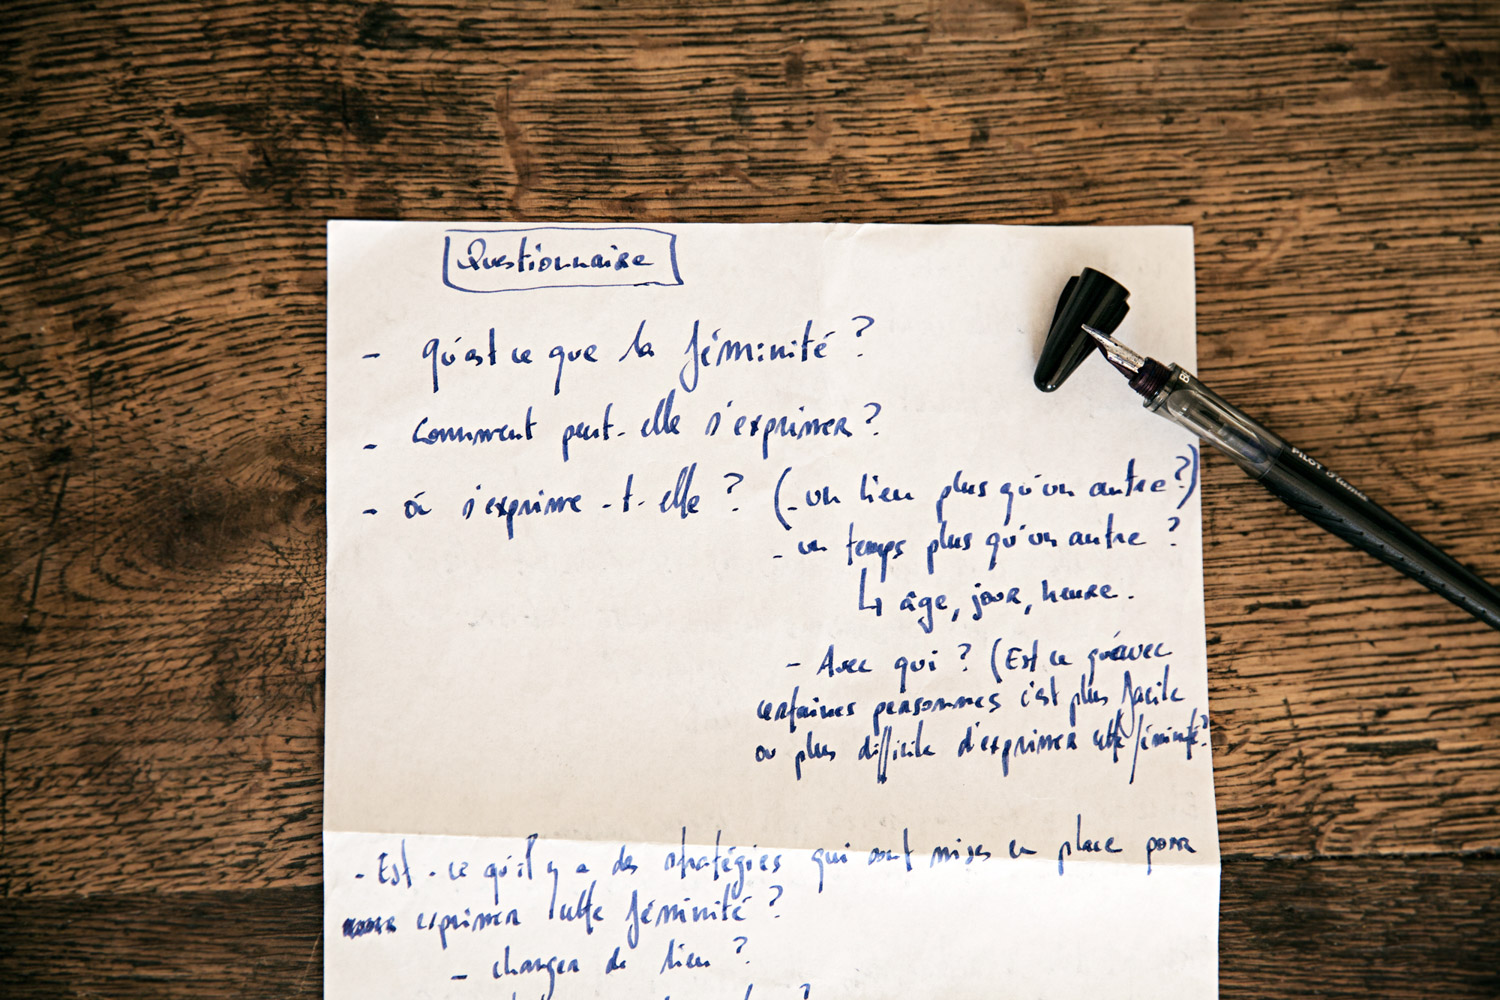 Questionnaire
- qu'est ce que la féminité ?
- Comment peut-elle s'exprimer ?
- où s'exprime-t-elle ? (- un lieu plus qu'un autre ?)
- un temps plus qu'un autre ?
↳ âge, jour, heure.
- Avec qui ? (Est ce qu'avec
certaines personnes c'est plus facile
ou plus difficile d'exprimer cette féminité ?
- Est-ce qu'il y a des stratégies qui sont mises en place pour
exprimer cette féminité ?
- changer de lieu ?
?
PILOT